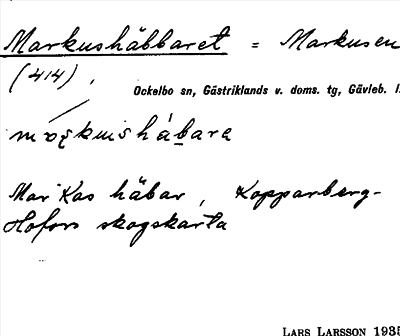 Markushäbbaret = Markusen
(414).
Ockelbo sn, Gästriklands v. doms. tg, Gävleb. l.
Mar Kas häbar, Kopparberg-
Hofors skogskarta
LARS LARSSON 1935